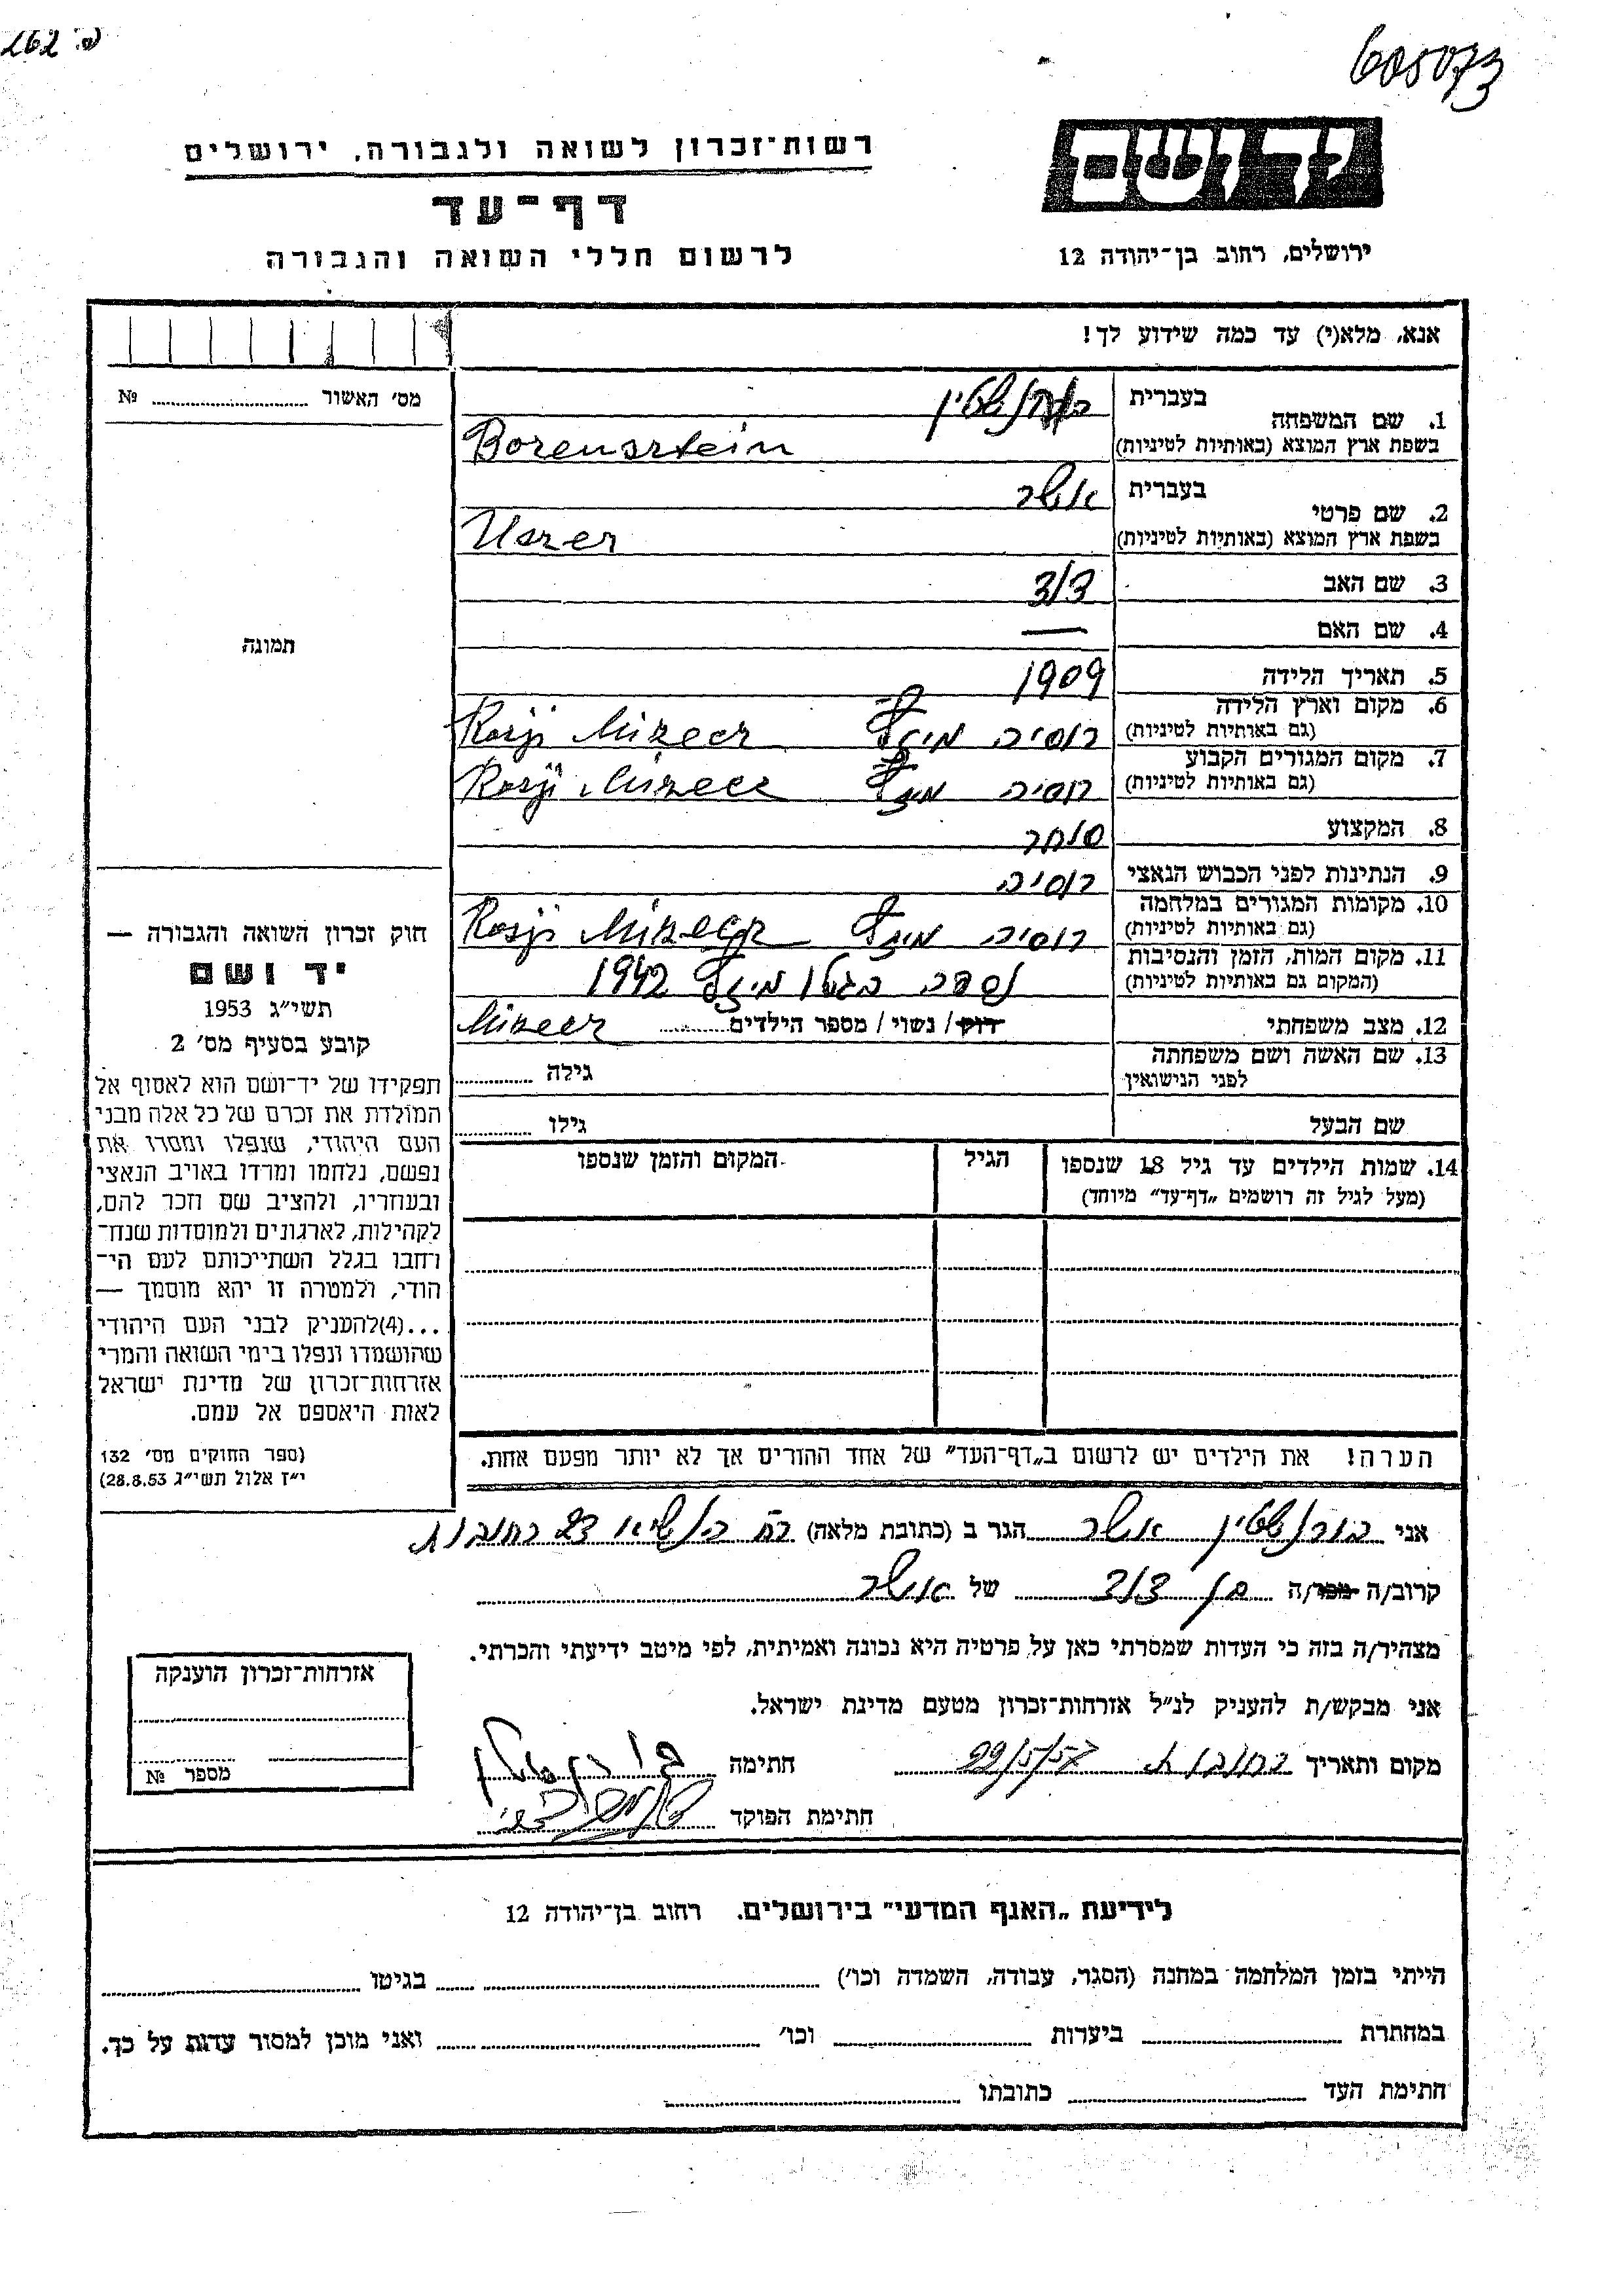 605073
162 .פ
יד ושם
רשות־זכרון לשואה ולגבורה, ירושלים
דף־עד
לרשום חללי השואה והגבורה
ירושלים, רחוב בן־יהודה 12
אנא, מלא(י) עד כמה שידוע לך!
מס׳ האשור № 
1. שם המשפחה
בעברית
בשפת ארץ המוצא (באותיות לטיניות) Borensztein
2. שם פרטי
בעברית אושר
בשפת ארץ המוצא (באותיות לטיניות) Uszer
3. שם האב דוד
4. שם האם —
5. תאריך הלידה 1909
6. מקום וארץ הלידה
(גם באותיות לטיניות) רוסיה
7. מקום המגורים הקבוע
(גם באותיות לטיניות) רוסיה
8. המקצוע סוחר
9. הנתינות לפני הכבוש הנאצי רוסיה
10. מקומות המגורים במלחמה
(גם באותיות לטיניות) רוסיה
11. מקום המות, הזמן והנסיבות
(המקום גם באותיות לטיניות) נספה בגטו 1942
12. מצב משפחתי רווק / נשוי / מספר הילדים
13. שם האשה ושם משפחתה
לפני הנישואין גילה
שם הבעל גילו
14. שמות הילדים עד גיל 18 שנספו
(מעל לגיל זה רושמים „דף־עד״ מיוחד)
הגיל
המקום והזמן שנספו
תמונה
חוק זכרון השואה והגבורה —
יד ושם
תשי״ג 1953
קובע בסעיף מס׳ 2
תפקידו של יד־ושם הוא לאסוף אל
המולדת את זכרם של כל אלה מבני
העם היהודי, שנפלו ומסרו את
נפשם, נלחמו ומרדו באויב הנאצי
ובעוזריו, ולהציב שם וזכר להם,
לקהילות, לארגונים ולמוסדות שנח־
רבו בגלל השתייכותם לעם הי־
הודי, ולמטרה זו יהא מוסמך —
...(4)להעניק לבני העם היהודי
שהושמדו ונפלו בימי השואה והמרי
אזרחות־זכרון של מדינת ישראל
לאות היאספם אל עמם.
(ספר החוקים מס׳ 132
י״ז אלול תשי״ג 28.8.53)
הערה! את הילדים יש לרשום ב„דף־העד״ של אחד ההורים אך לא יותר מפעם אחת.
אני בורנשטין אושר הגר ב (כתובת מלאה) רח הנשיא 23 רחובות
קרוב/ה מכר/ה בן דוד של אושר
מצהיר/ה בזה כי העדות שמסרתי כאן על פרטיה היא נכונה ואמיתית, לפי מיטב ידיעתי והכרתי.
אני מבקש/ת להעניק לנ״ל אזרחות־זכרון מטעם מדינת ישראל.
מקום ותאריך רחובות 22/5/57 חתימה
חתימת הפוקד
אזרחות־זכרון הוענקה
מספר №
לידיעת „האגף המדעי״ בירושלים. רחוב בן־יהודה 12
הייתי בזמן המלחמה במחנה (הסגר, עבודה, השמדה וכו׳) בגיטו
במחתרת ביערות וכו׳ ואני מוכן למסור עדות על כך.
חתימת העד כתובתו